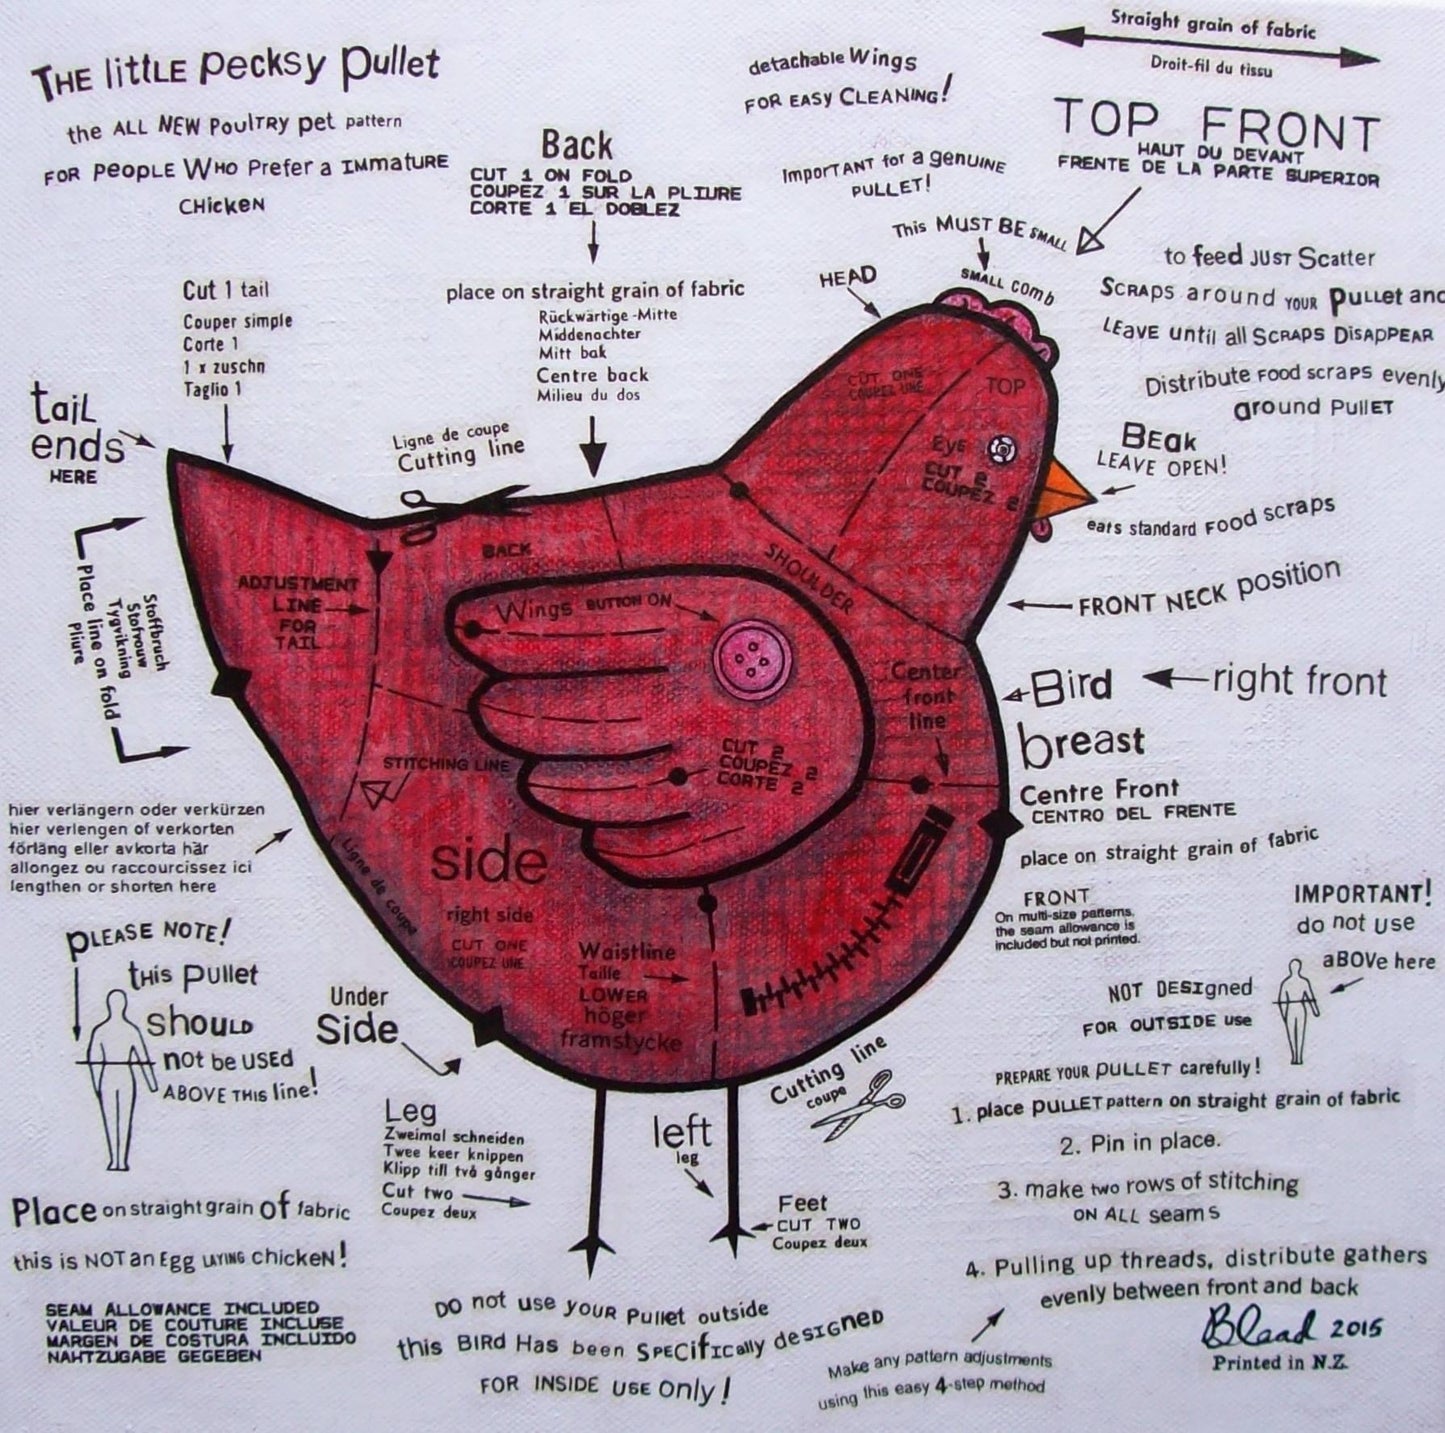 THE little pecksy pullet
the ALL NEW PoulTRY pet pattern
FOR PeoPLE WHO Prefer a IMmatURE
CHickeN
detachable Wings
FOR EASY CLEANING!
Straight grain of fabric
Droit-fil du tissu
TOP FRONT
HAUT DU DEVANT
FRENTE DE LA PARTE SUPERIOR
Back
CUT 1 ON FOLD
COUPEZ 1 SUR LA PLIURE
CORTE 1 EL DOBLEZ
ImporTANT for a genUINE
PULLET!
This MUST BE SMALL
SMALL comb
HEAD
to feed JUST Scatter
SCRAPS around YOUR PulLET and
LEAVE until all SCRAPS DISAPPEAR
Distribute FOOD scraps evenly
around PUllET
Cut 1 tail
Couper simple
Corte 1
1 x zuschn
Taglio 1
place on straight grain of fabric
Rückwärtige-Mitte
Middenachter
Mitt bak
Centre back
Milieu du dos
taiL
ends
HERE
Ligne de coupe
Cutting line
CUT ONE
COUPEZ UNE
TOP
EyE
CUT 2
COUPEZ 2
BEak
LEAVE OPEN!
eats standard FOOD scraps
FRONT NECK position
Place line on fold
Pliure
Stoffbruch
Stofvouw
Tygvikning
BACK
SHOULDER
ADJUSTMENT
LINE
FOR
TAIL
Wings BUTTON ON
Center
front
line
Bird
right front
breast
Centre Front
CENTRO DEL FRENTE
place on straight grain of fabric
STITCHING LINE
CUT 2
COUPEZ 2
CORTE 2
hier verlängern oder verkürzen
hier verlengen of verkorten
förläng eller avkorta här
allongez ou raccourcissez ici
lengthen or shorten here
Ligne de coupe
side
right side
CUT ONE
COUPEZ UNE
Waistline
Taille
LOWER
höger
framstycke
FRONT
On multi-size patterns,
the seam allowance is
included but not printed.
IMPORTANT!
do not use
aBOVe here
NOT DESIgned
FOR OUTSIDE use
PLEASE NOTE!
this Pullet
shoulD
not be USEd
ABOVE THIS line!
Under
Side
Cutting line
coupe
PREPARE YOUR PULLET carefully!
1. place PULLET pattern on straight grain of fabric
2. Pin in place.
3. make two rows of stitching
ON ALL seams
4. Pulling up threads, distribute gathers
evenly between front and back
Leg
Zweimal schneiden
Twee keer knippen
Klipp till två gånger
Cut two
Coupez deux
left
leg
Feet
CUT TWO
Coupez deux
Place on straight grain of fabric
this is NOT an Egg LAYING chickeN!
SEAM ALLOWANCE INCLUDED
VALEUR DE COUTURE INCLUSE
MARGEN DE COSTURA INCLUIDO
NAHTZUGABE GEGEBEN
DO not use yOUR Pullet outside
this BIRd Has been SPECifIcally desIGNED
FOR INSIDE USE only!
Make any pattern adjustments
using this easy 4-step method
BLead 2015
Printed in N.Z.